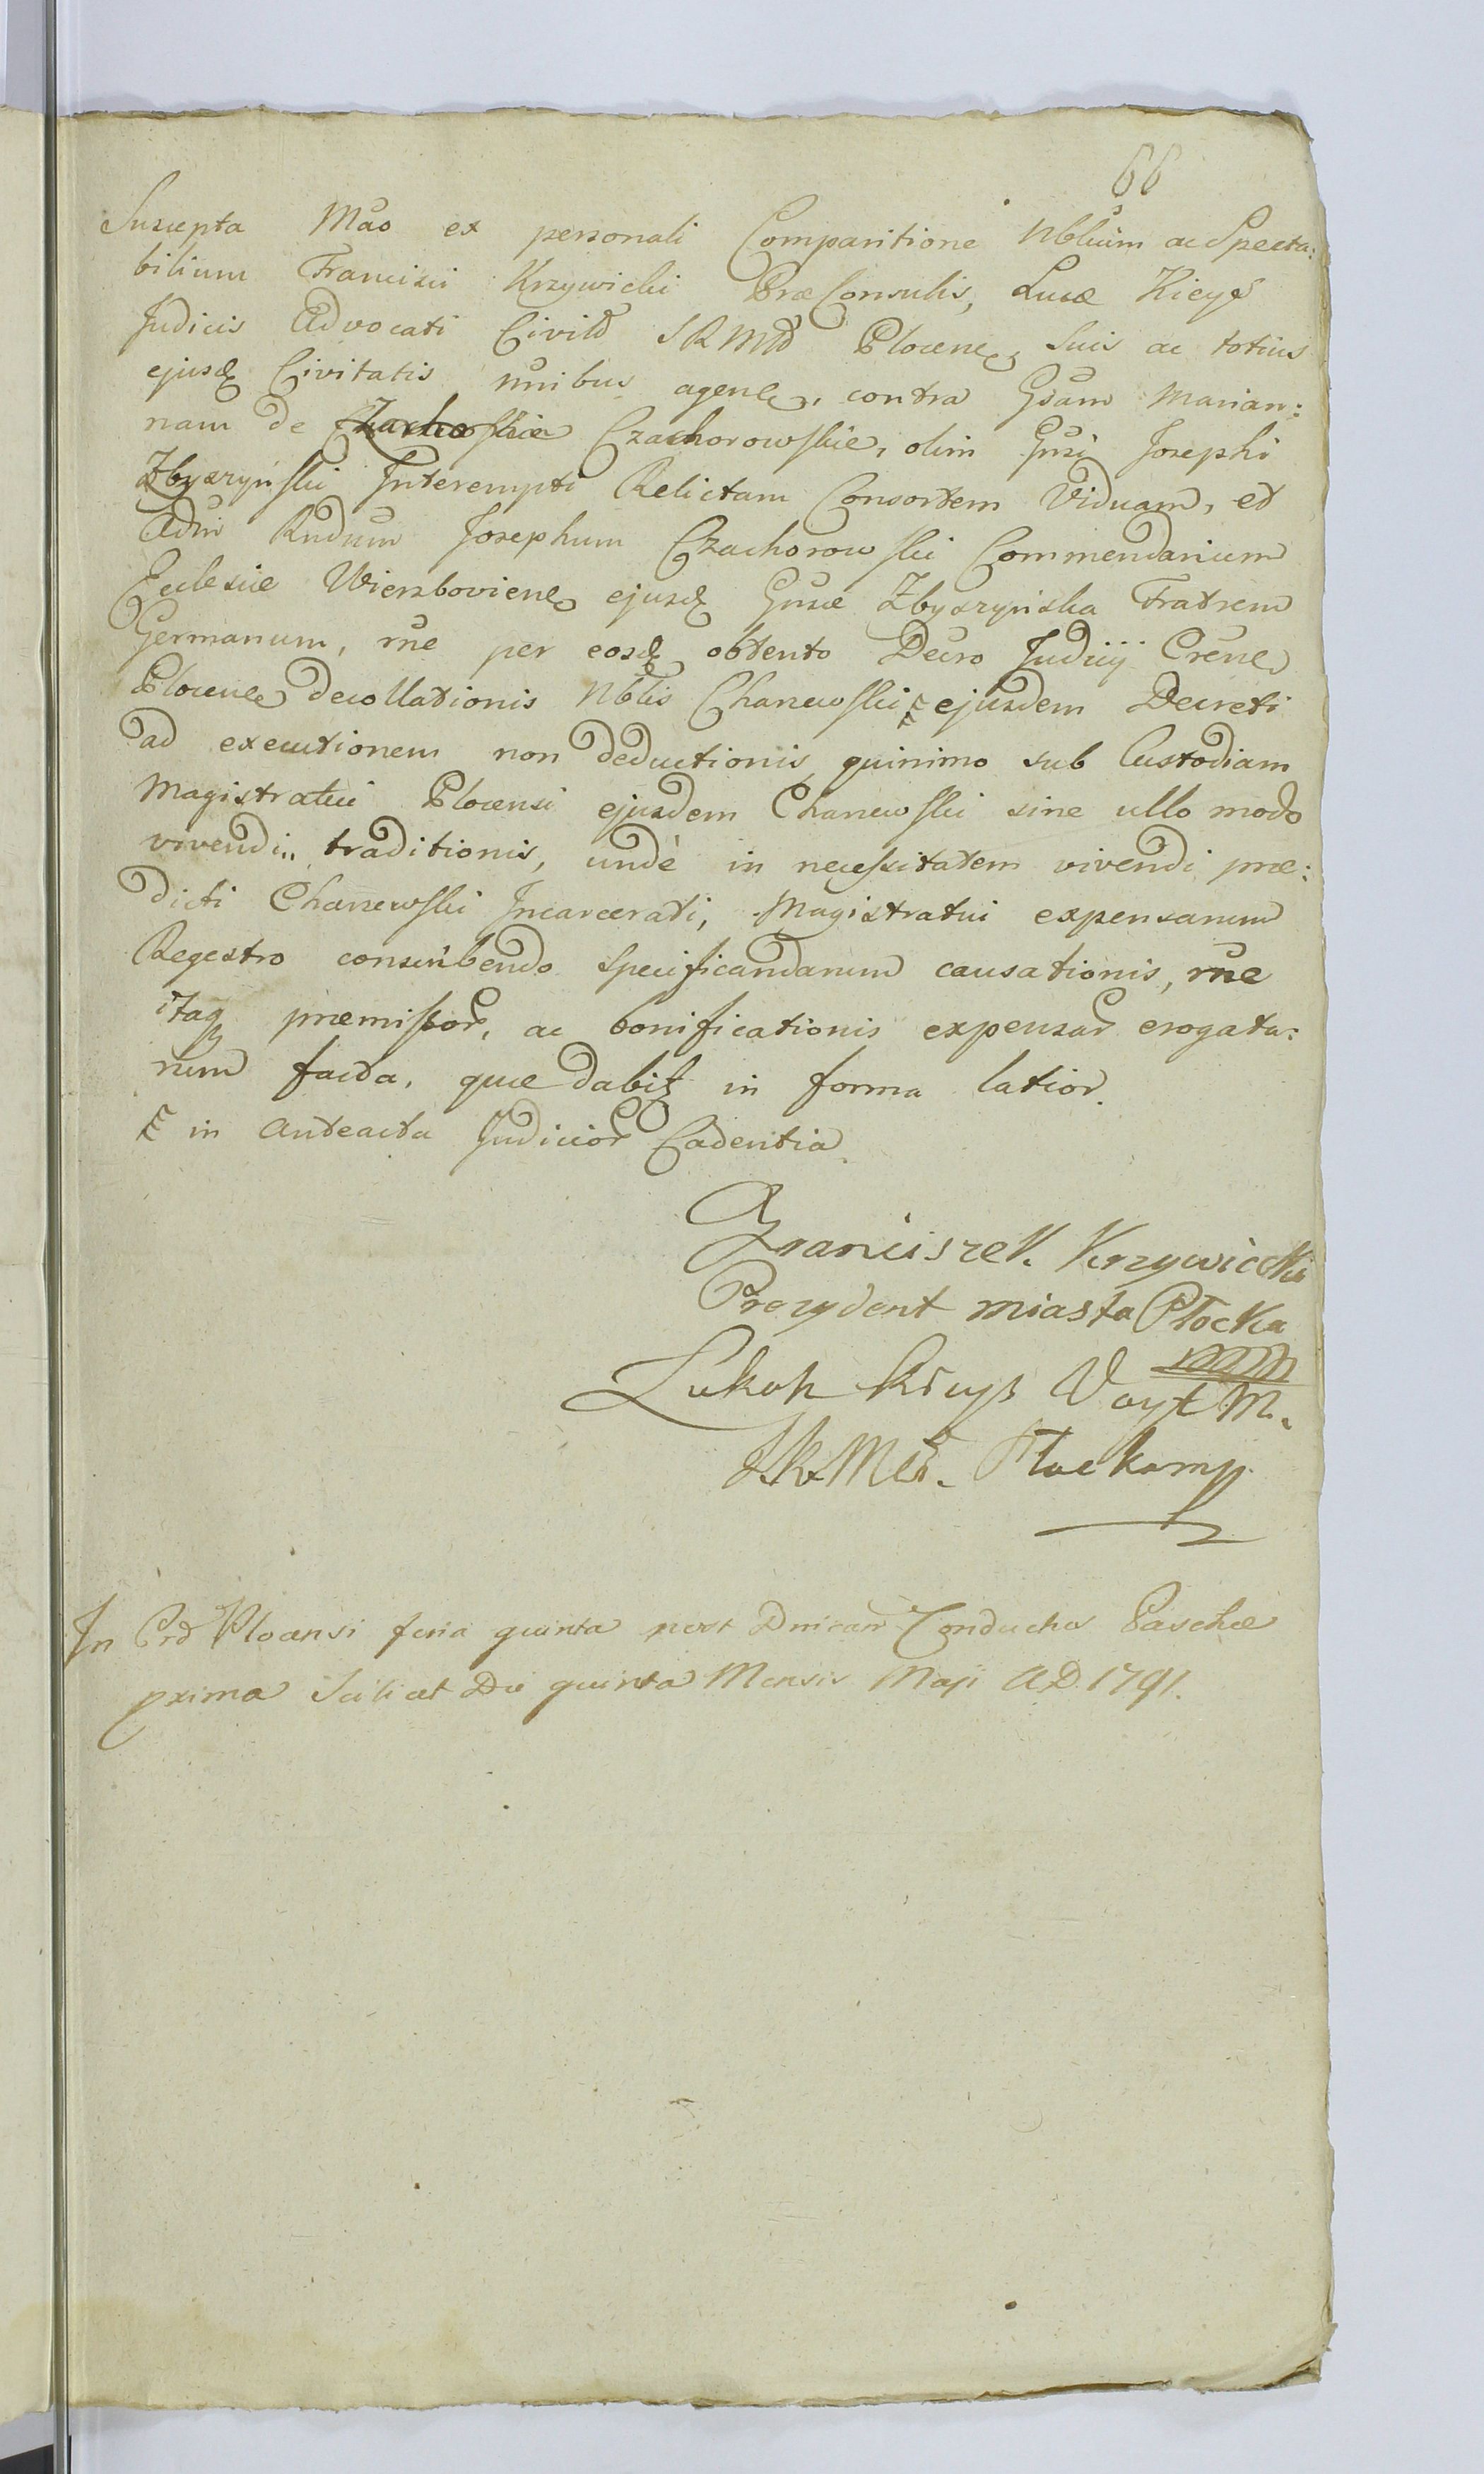 66
Suscepta Mão ex personali Comparitione Nblium ac Specta:
bilium Francisci Krzywicki PræConsulis, Lucæ Kicyș
Judicis Advocati Civilis SRMtis Plocen, Suis ac totius
ejusd Civitatis nnibus agen, contra Gsam Marian:
nam de Czachorowskie, olim Gnsi Josephi
Zbyszyński Interempti Relictam Consortem Viduam, et
Adm Rndum Josephum Czachorowski Commendarium
Ecclesiæ Wierzbovien ejusd Gnsæ Zbyszyńska Fratrem
Germanum, rne per eosd obtento Decro Judicij Cren
Plocen decollationis Nblis Chanewski ejusdem Decreti
ad executionem non deductionis quinimo sub Custodiam
Magistratui Plocensi ejusdem Chanewski sine ullo modo
vivendi traditionis, undè in necessitatem vivendi præ:
dicti Chanewski Incarcerati, Magistratui expensarum
Regestro conscribendo specificandarum causationis, rne
itaq præmissor, ac bonificationis expensar erogata:
rum facta, quæ dabit in forma latior.
in anteacta Judicior Cadentia.
Franciszek Krzywicki
Prezydent miasta Płocka
mpp
Łukasz Kicyș Woyt M.
JKMci. Płocka mp.
In Crd Plocensi feria quinta post Dnicam Conductus Paschæ
prima Scilicet Die quinta Mensis Maji A.D. 1791.